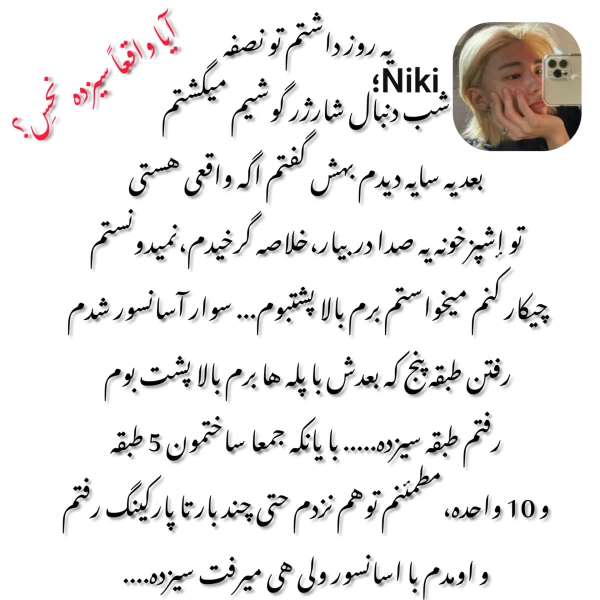 آیا واقعاً سیزده نحسِ؟
Niki؛
یه روز داشتم تو نصفه
شب دنبال شارژر گوشیم میگشتم
بعد یه سایه دیدم بهش گفتم اگه واقعی هستی
تو إشپزخونه یه صدا در بیار، خلاصه گرخیدم، نمیدونستم
چیکار کنم میخواستم برم بالا پشتبوم... سوار آسانسور شدم
رفتن طبقه پنج که بعدش با پله ها برم بالا پشت بوم
رفتم طبقه سیزده..... با یانکه جمعا ساختمون 5 طبقه
و 10 واحده، مطمئنم توهم نزدم حتی چند بار تا پارکینگ رفتم
و اومدم با اسانسور ولی هی میرفت سیزده....